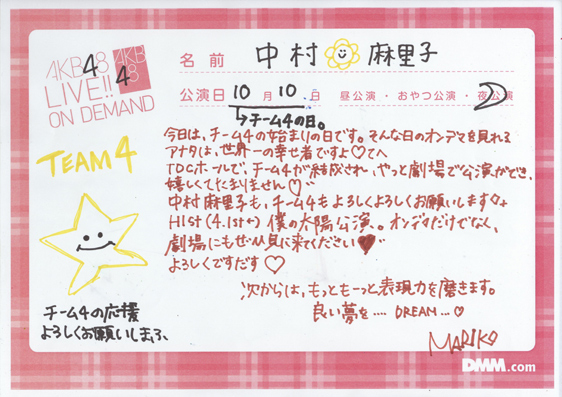 AKB48
LIVE!!
ON DEMAND
AKB
48
名前 中村麻里子
公演日 10月10日 昼公演・おやつ公演・夜公演
→チーム4の日。
今日は、チーム4の始まりの日です。そんな日のオンデマを見れる
アナタは、世界一の幸せ者ですよ♡てへ
TDCホールで、チーム4が結成され、やっと劇場で公演ができ、
嬉しくてたまりません♡
中村麻里子も、チーム4もよろしくよろしくお願いします
H1st(4.1st←) 僕の太陽公演。オンデマだけでなく、
劇場にもぜひ見に来てください♥
よろしくですだす♡
次からは、もっともーっと表現力を磨きます。
良い夢を.... DREAM...♡
MARIKO
TEAM4
チーム4の応援
よろしくお願いしまふ、
DMM.com